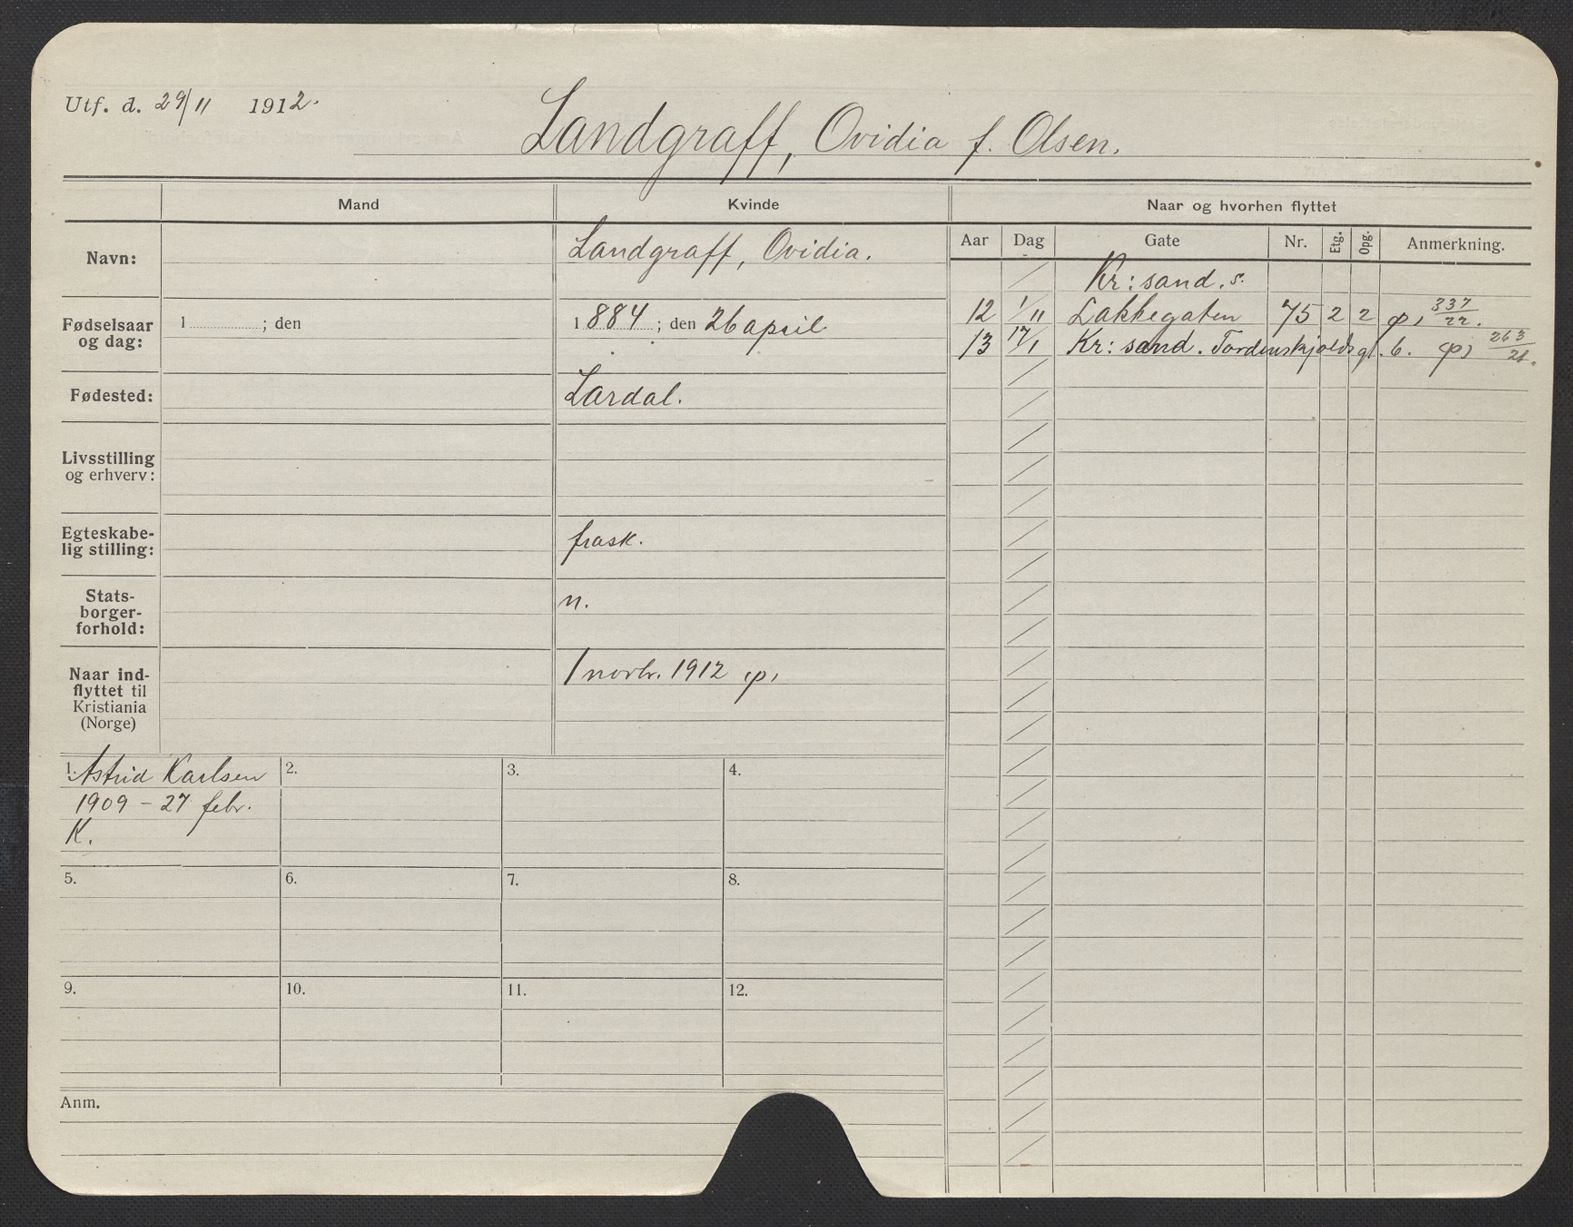 Utf. d. 29/11 1912.
Landgraff, Ovidia f. Olsen.
Mand Kvinde Naar og hvorhen flyttet
Aar Dag Gate Nr. Etg. Opg. Anmerkning.
Navn: Landgraff, Ovidia.
Fødselsaar
og dag: 1 ; den 1884 ; den 26 april
Fødested: Lardal.
Livsstilling
og erhverv:
Egteskabe-
lig stilling: frask.
Stats-
borger-
forhold: n.
Naar ind-
flyttet til
Kristiania
(Norge) 1 novbr. 1912 p,
Kr: sand. s.
12 1/11 Lakkegaten 75 2 2 p, 337/22.
13 17/1 Kr: sand. Tordenskjolds gt. 6. p, 263/21.
1. Astrid Karlsen
1909 - 27 febr.
K.
2.
3.
4.
5.
6.
7.
8.
9.
10.
11.
12.
Anm.